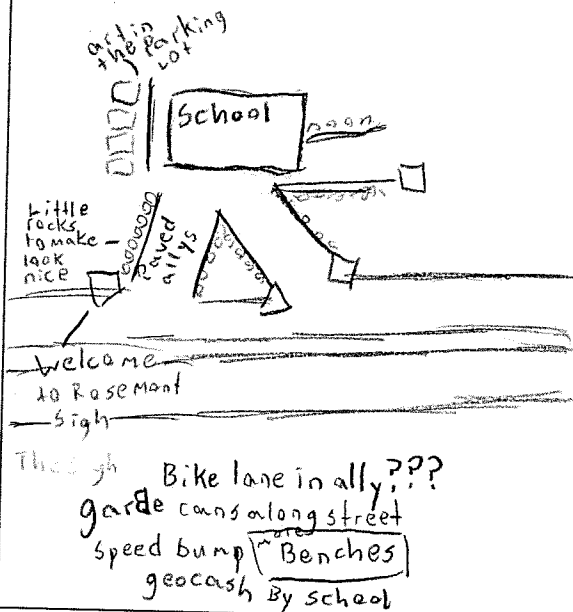 art in
the Parking
Lot
School
Little
rocks
to make
look
nice
Paved
allys
Welcome
to Rosemant
sigh
Bike lane in ally???
garde cans along street
speed bump more Benches
geocash By school